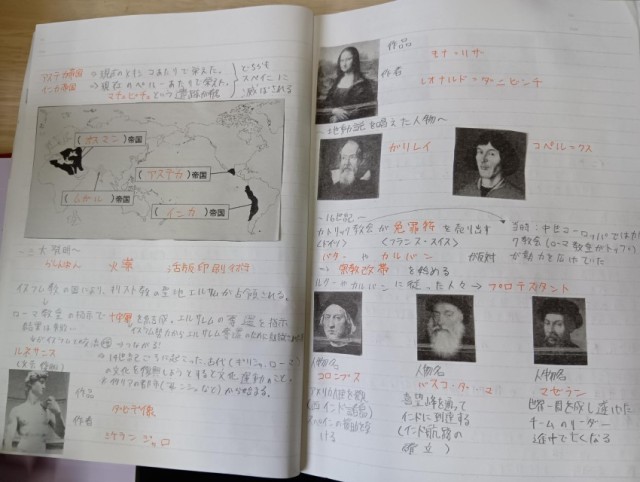 アステカ帝国 → 現在のメキシコあたりで栄えた。
インカ帝国 → 現在のペルーあたりで栄えた。
マチュピチュという遺跡が有
どちらも
スペインに
滅ぼされる
(オスマン)帝国
(ムガル)帝国
(アステカ)帝国
(インカ)帝国
〜三大発明〜
らしん盤 火薬 活版印刷
イスラム教の国により、キリスト教の聖地エルサレムが占領される。
ローマ教皇の指示で十字軍を結成。エルサレムの奪還を指示
結果は失敗
ルネサンス
(文芸復興)
→ 14世紀ごろに起こった、古代(ギリシャ、ローマ)
の文化を復興しようとする文化運動のこと。
イタリアの都市から始まる。
作品
ダビデ像
作者
ミケランジェロ
作品
モナ・リザ
作者
レオナルド・ダ・ビンチ
〜地動説を唱えた人物〜
ガリレイ
コペルニクス
〜16世紀〜
カトリック教会が免罪符を売り出す
<ドイツ> <フランス・スイス>
ルターやカルバンが反対
→ 宗教改革を始める
当時:中世ヨーロッパではカトリッ
ク教会(ローマ教皇がトップ)
が勢力を広げていた
ルターやカルバンに従った人々 → プロテスタント
人物名
コロンブス
アメリカ大陸を発
(西インド諸島)
人物名
バスコ・ダ・ガマ
喜望峰を通って
インドに到達する
(インド航路の
確立)
人物名
マゼラン
世界一周を成し遂げた
チームのリーダー
途中で亡くなる